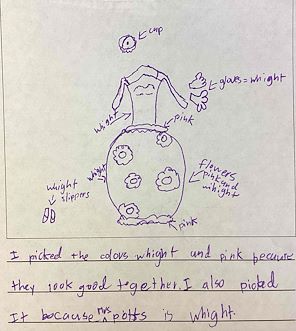 cup
glovs = whight
whight
pink
whight
flowers
pink and
whight
whight
slippers
pink
I picked the colors whight and pink because
they look good together. I also picked
It because mrs potts is whight.